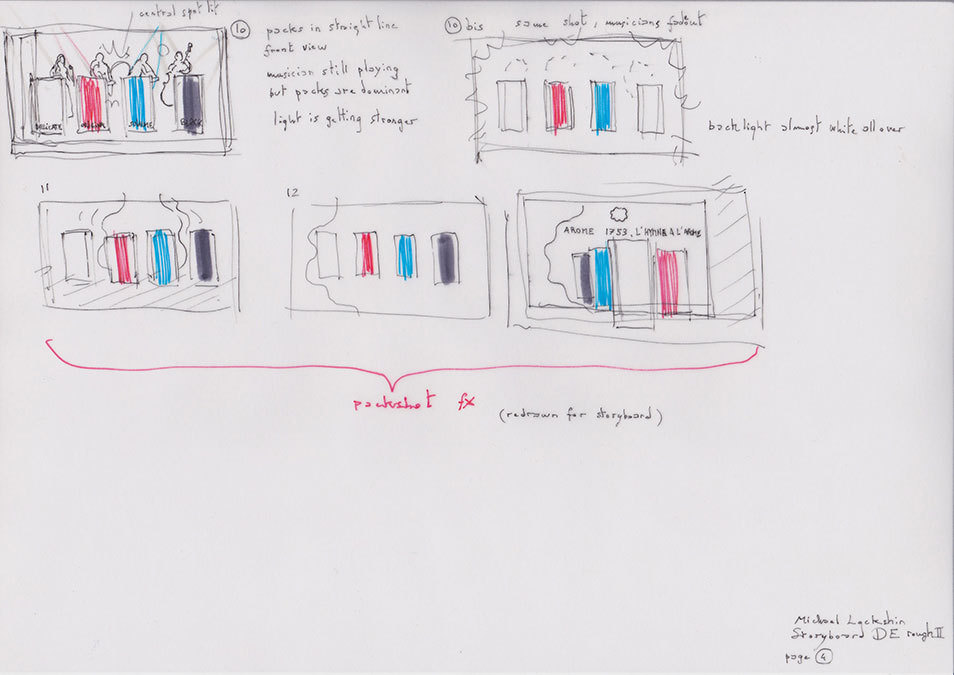 central spot lit
10
packs in straight line
front view
musician still playing
but packs are dominant
light is getting stronger
DELICATE
BLACK
10 bis
same shot, musicians fadeout
backlight almost white all over
11
12
AROME 1753, L'HYMNE A L'AROME
packshot fx
(redrawn for storyboard)
Michael Lockshin
Storyboard DE rough II
page 4